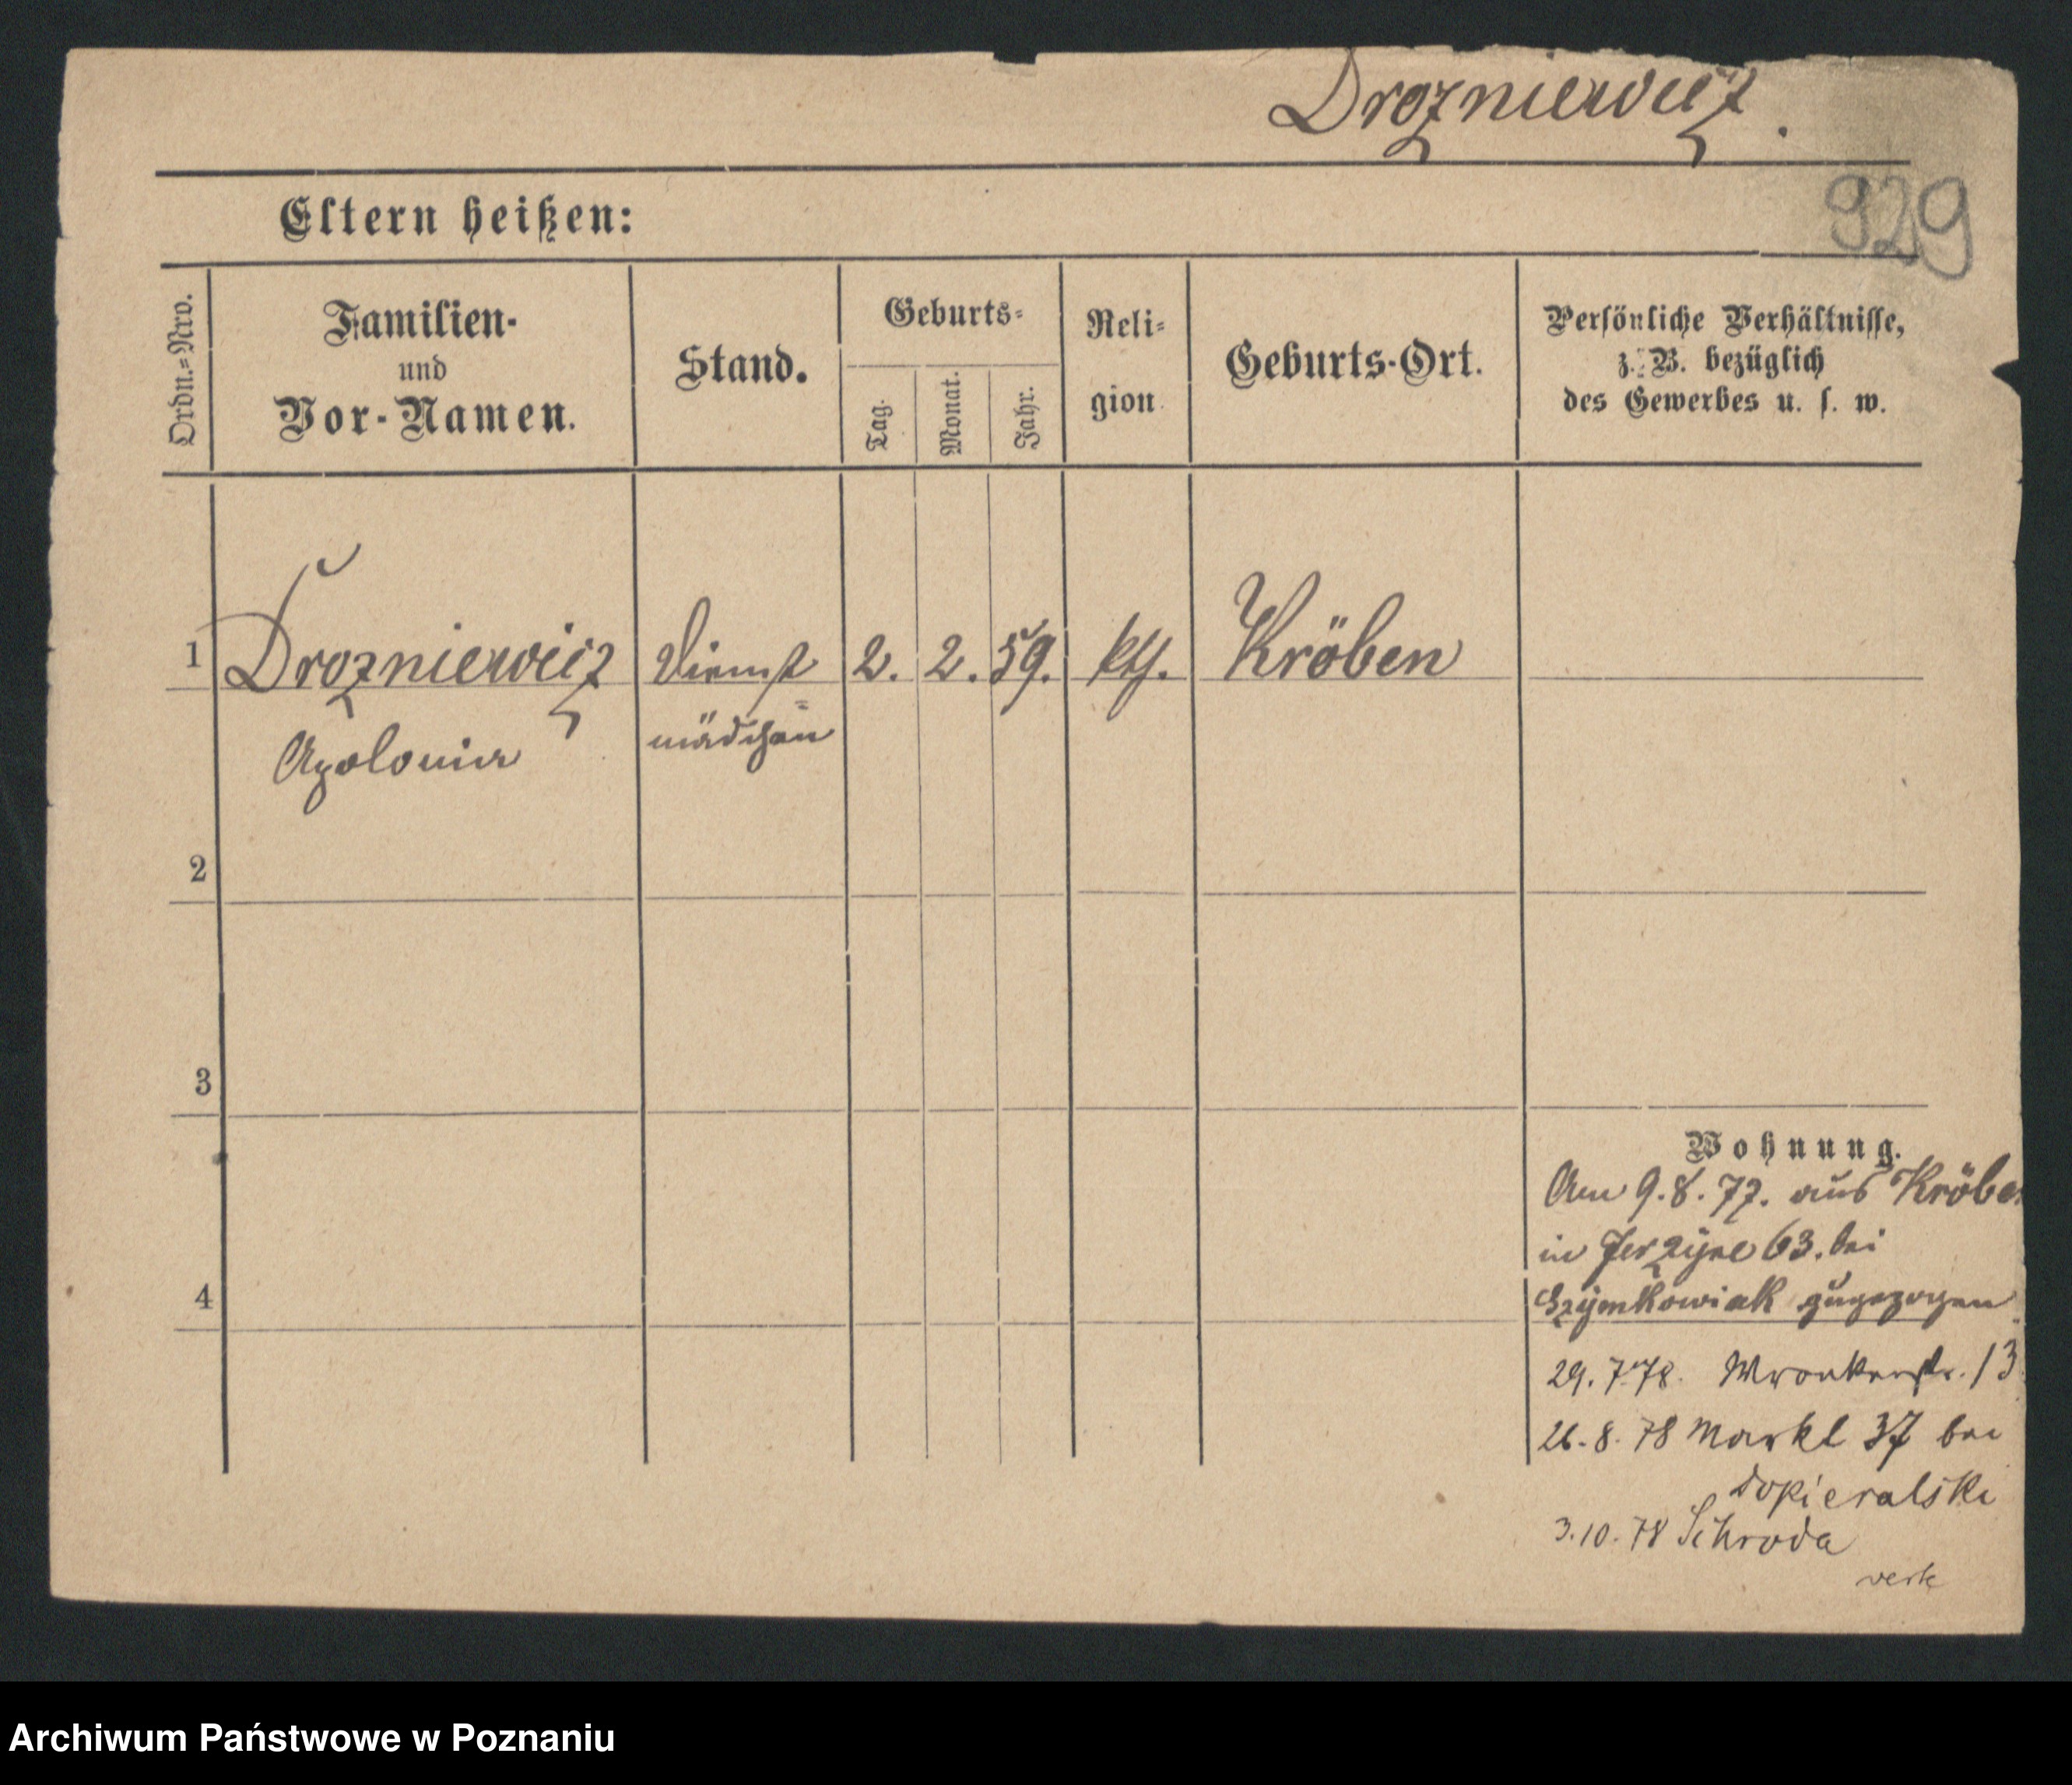 Drozniewicz.
929
Eltern heißen:
Ordn.=Nro.
Familien-
und
Vor-Namen.
Stand.
Geburts-
Tag.
Monat.
Jahr.
Reli-
gion
Geburts-Ort.
Persönliche Verhältnisse,
z. B. bezüglich
des Gewerbes u. s. w.
1 Drozniewicz Dienst 2. 2. 59. kth. Kröben
Apolonia mädchen
2
3
Wohnung.
Am 9.8.77. aus Kröben
in 63. bei
4
Szymkowiak zugezogen
29.7.78. Wronkerstr. 13
26.8.78 Markt 37 bei
Dopieralski
3.10.78 Schroda
Archiwum Państwowe w Poznaniu